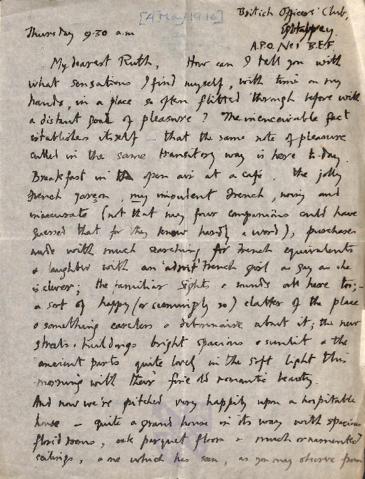 [4 May 1916]
British Officers' Club,
Thursday 9.30 a.m
A.P.O. No 1 B.E.F
My dearest Ruth, How can I tell you with
what sensations I find myself, with time on my
hands, in a place so often flitted through before with
a distant goal of pleasure? The inconceivable fact
establishes itself – that the same note of pleasure
in the same transitory way is here to-day.
Breakfast in the open air at a café. the jolly
French garçon, my impudent French, noisy and
inaccurate (not that my four companions could have
guessed that for they know hardly a word), purchases
made with much searching for French equivalents
& laughter with an adroit French girl as gay as she
is clever; the familiar sights & sounds are here too; –
a sort of happy (or seemingly so) clatter of the place
& something careless & debonnaire about it; the new
streets & buildings bright spacious & sunlit & the
ancient parts quite lovely in the soft light this
morning with their fine old romantic beauty.
And now we're pitched very happily upon a hospitable
house – quite a grand house in its way with spacious
florid rooms, oak parquet floor & much ornamented
ceilings, & one which has seen, as you may observe from